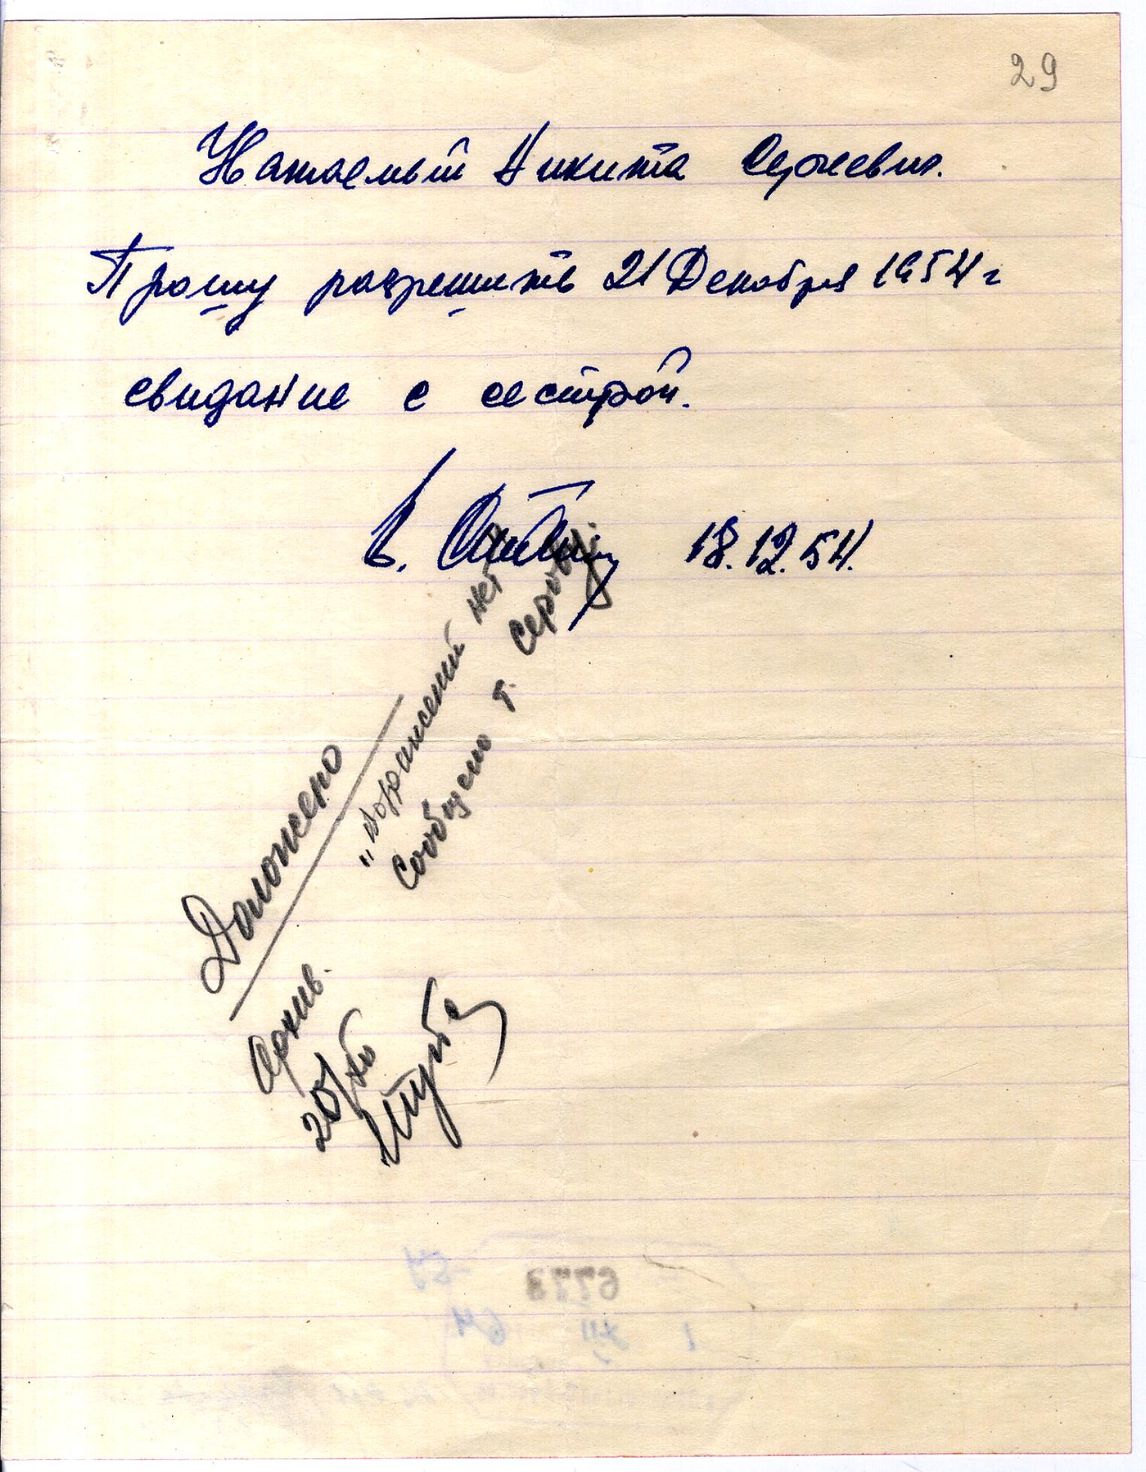 29
Уважаемый Никита Сергеевич.
Прошу разрешить 21 Декабря 1954 г
свидание с сестрой.
В. 18.12.54.
Доложено
"Возражений нет"
Сообщено т. Серову
Архив.
20/XII
6773